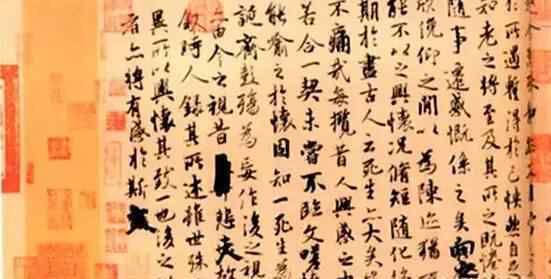 於所遇蹔得於己怏然自
知老之將至及其所之既惓
隨事遷感慨係之矣向
欣俛仰之閒以為陳迹猶
能不以之興懷況脩短隨化
期於盡古人云死生亦大矣
不痛哉每攬昔人興感之
若合一契未嘗不臨文嗟
能喻之於懷固知一死生為
誕齊彭殤為妄作後之視
亦由今之視昔悲夫故
敘時人錄其所述雖世殊
異所以興懷其致一也後之
者亦將有感於斯文